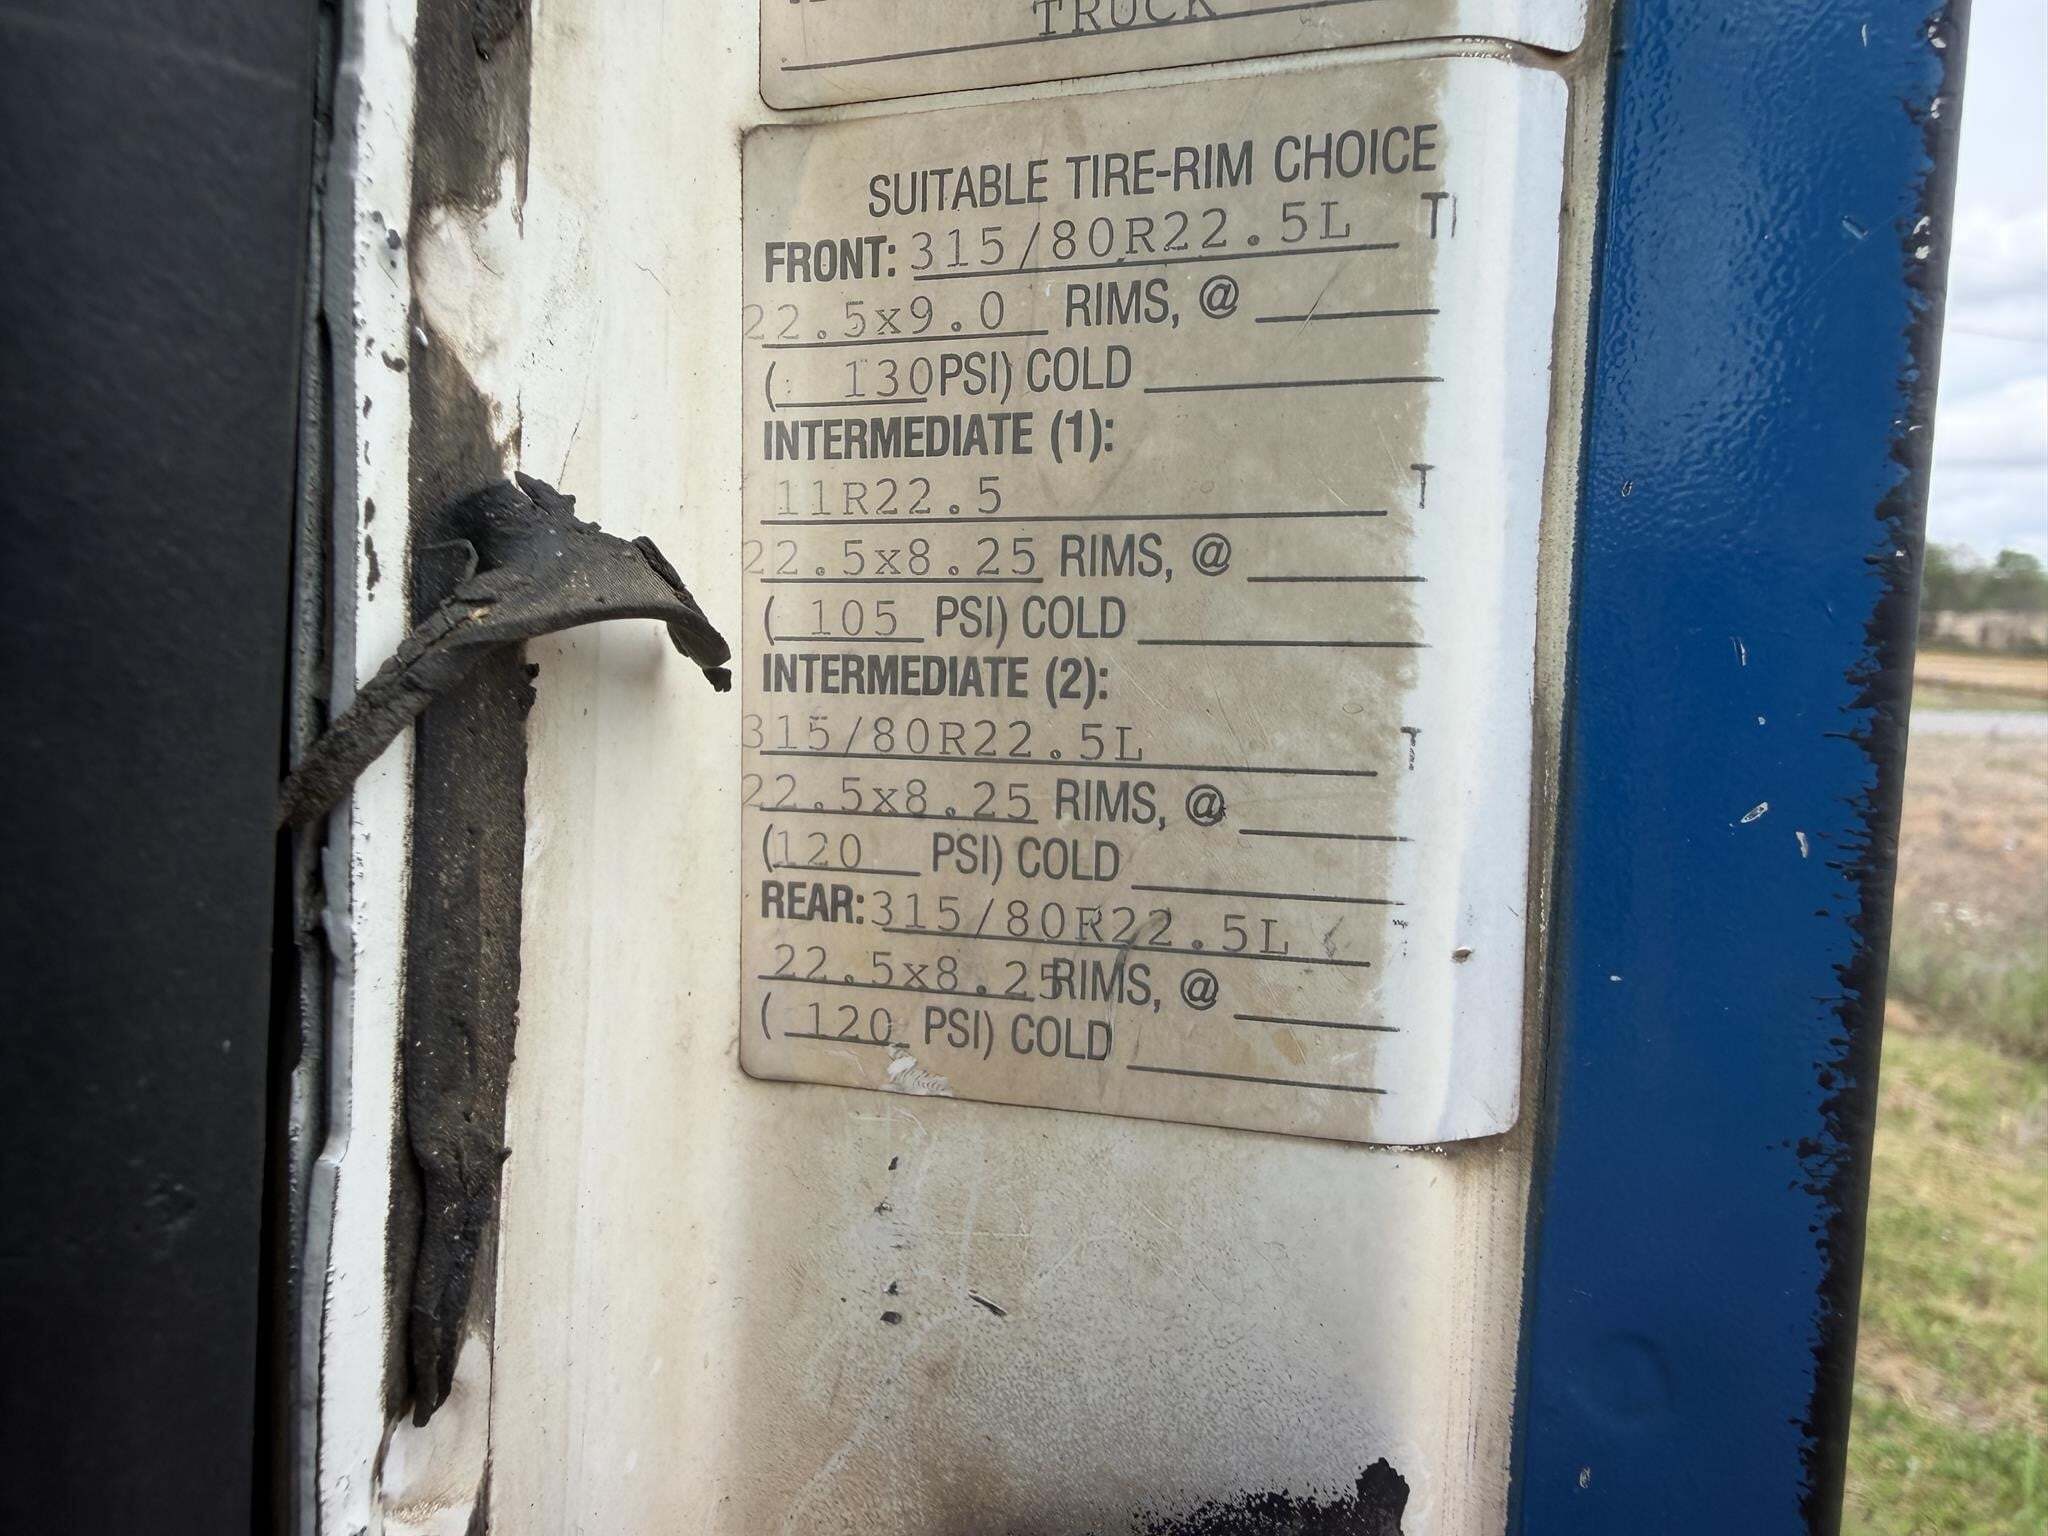 TRUCK
SUITABLE TIRE-RIM CHOICE
FRONT: 315/80R22.5L
22.5x9.0 RIMS, @
( 130PSI) COLD
INTERMEDIATE (1):
11R22.5
22.5x8.25 RIMS, @
( 105 PSI) COLD
INTERMEDIATE (2):
315/80R22.5L
22.5x8.25 RIMS, @
(120 PSI) COLD
REAR: 315/80R22.5L
22.5x8.25RIMS, @
( 120 PSI) COLD